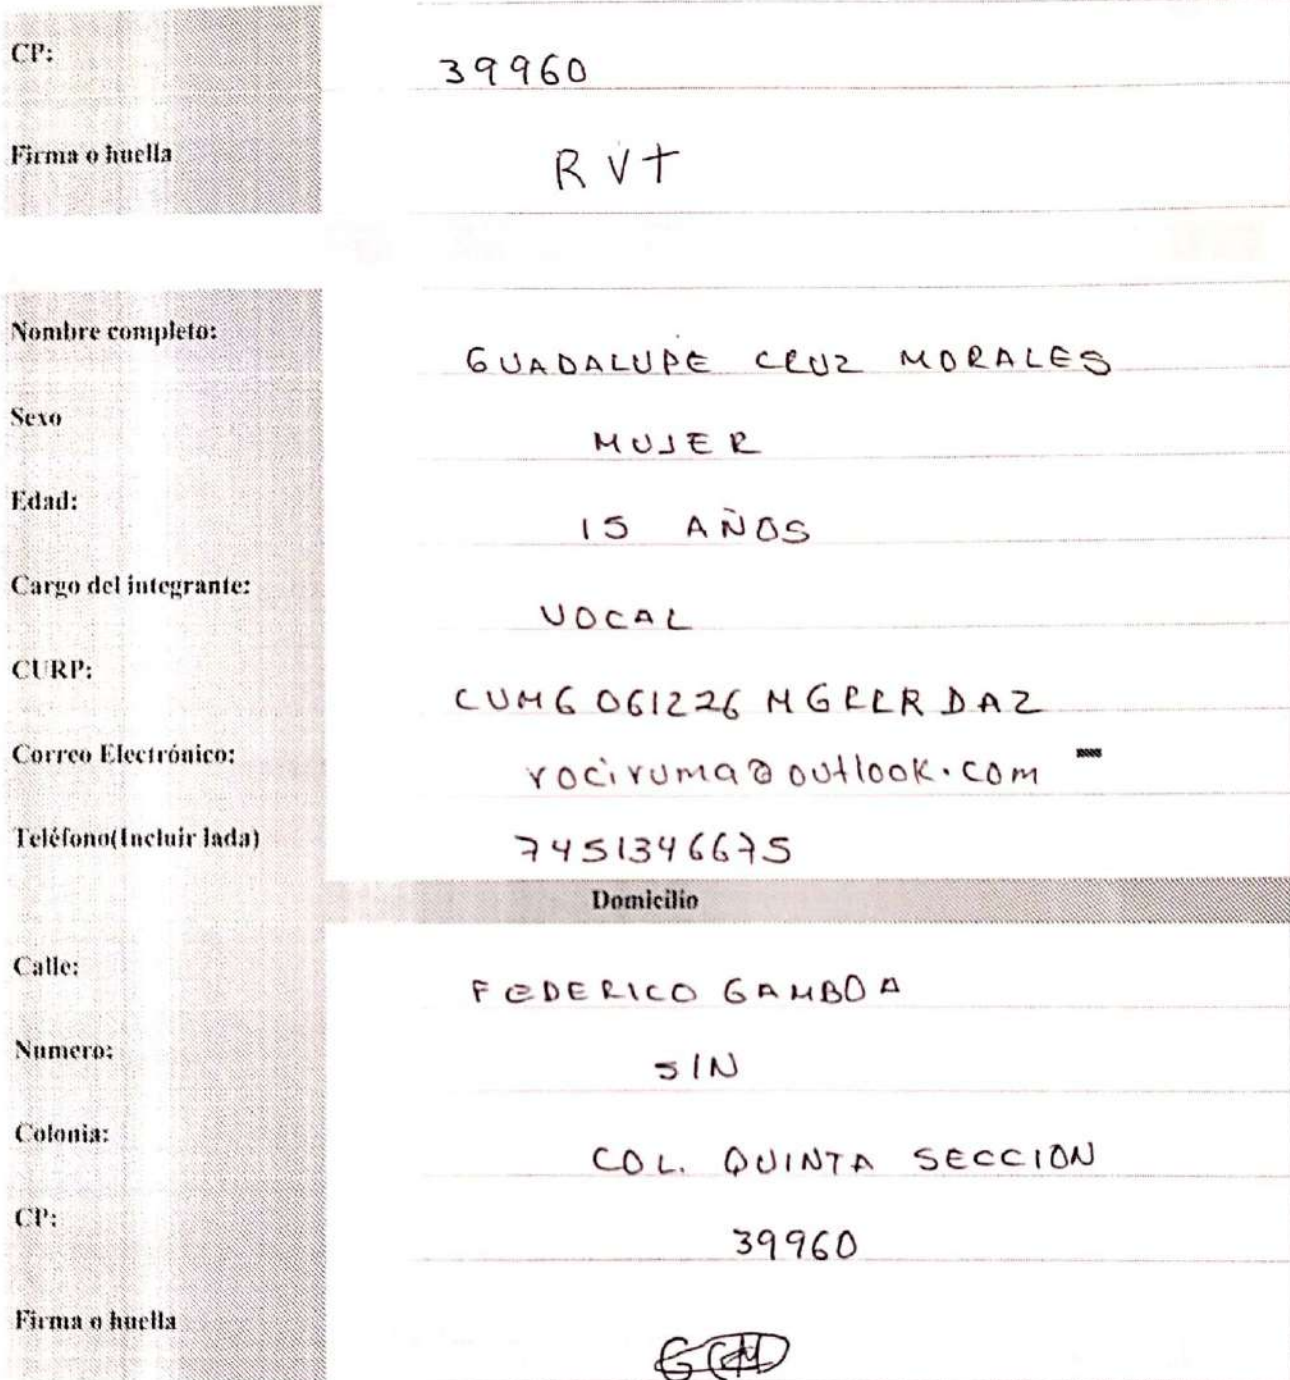 CP: 39960
Firma o huella RVT
Nombre completo: GUADALUPE CRUZ MORALES
Sexo MUJER
Edad: 15 AÑOS
Cargo del integrante: VOCAL
CURP: CUMG061226MGRRRDAZ
Correo Electrónico: rociruma@outlook.com
Teléfono(Incluir lada) 7451346675
Domicilio
Calle: FEDERICO GAMBOA
Numero: S/N
Colonia: COL. QUINTA SECCION
CP: 39960
Firma o huella GCM